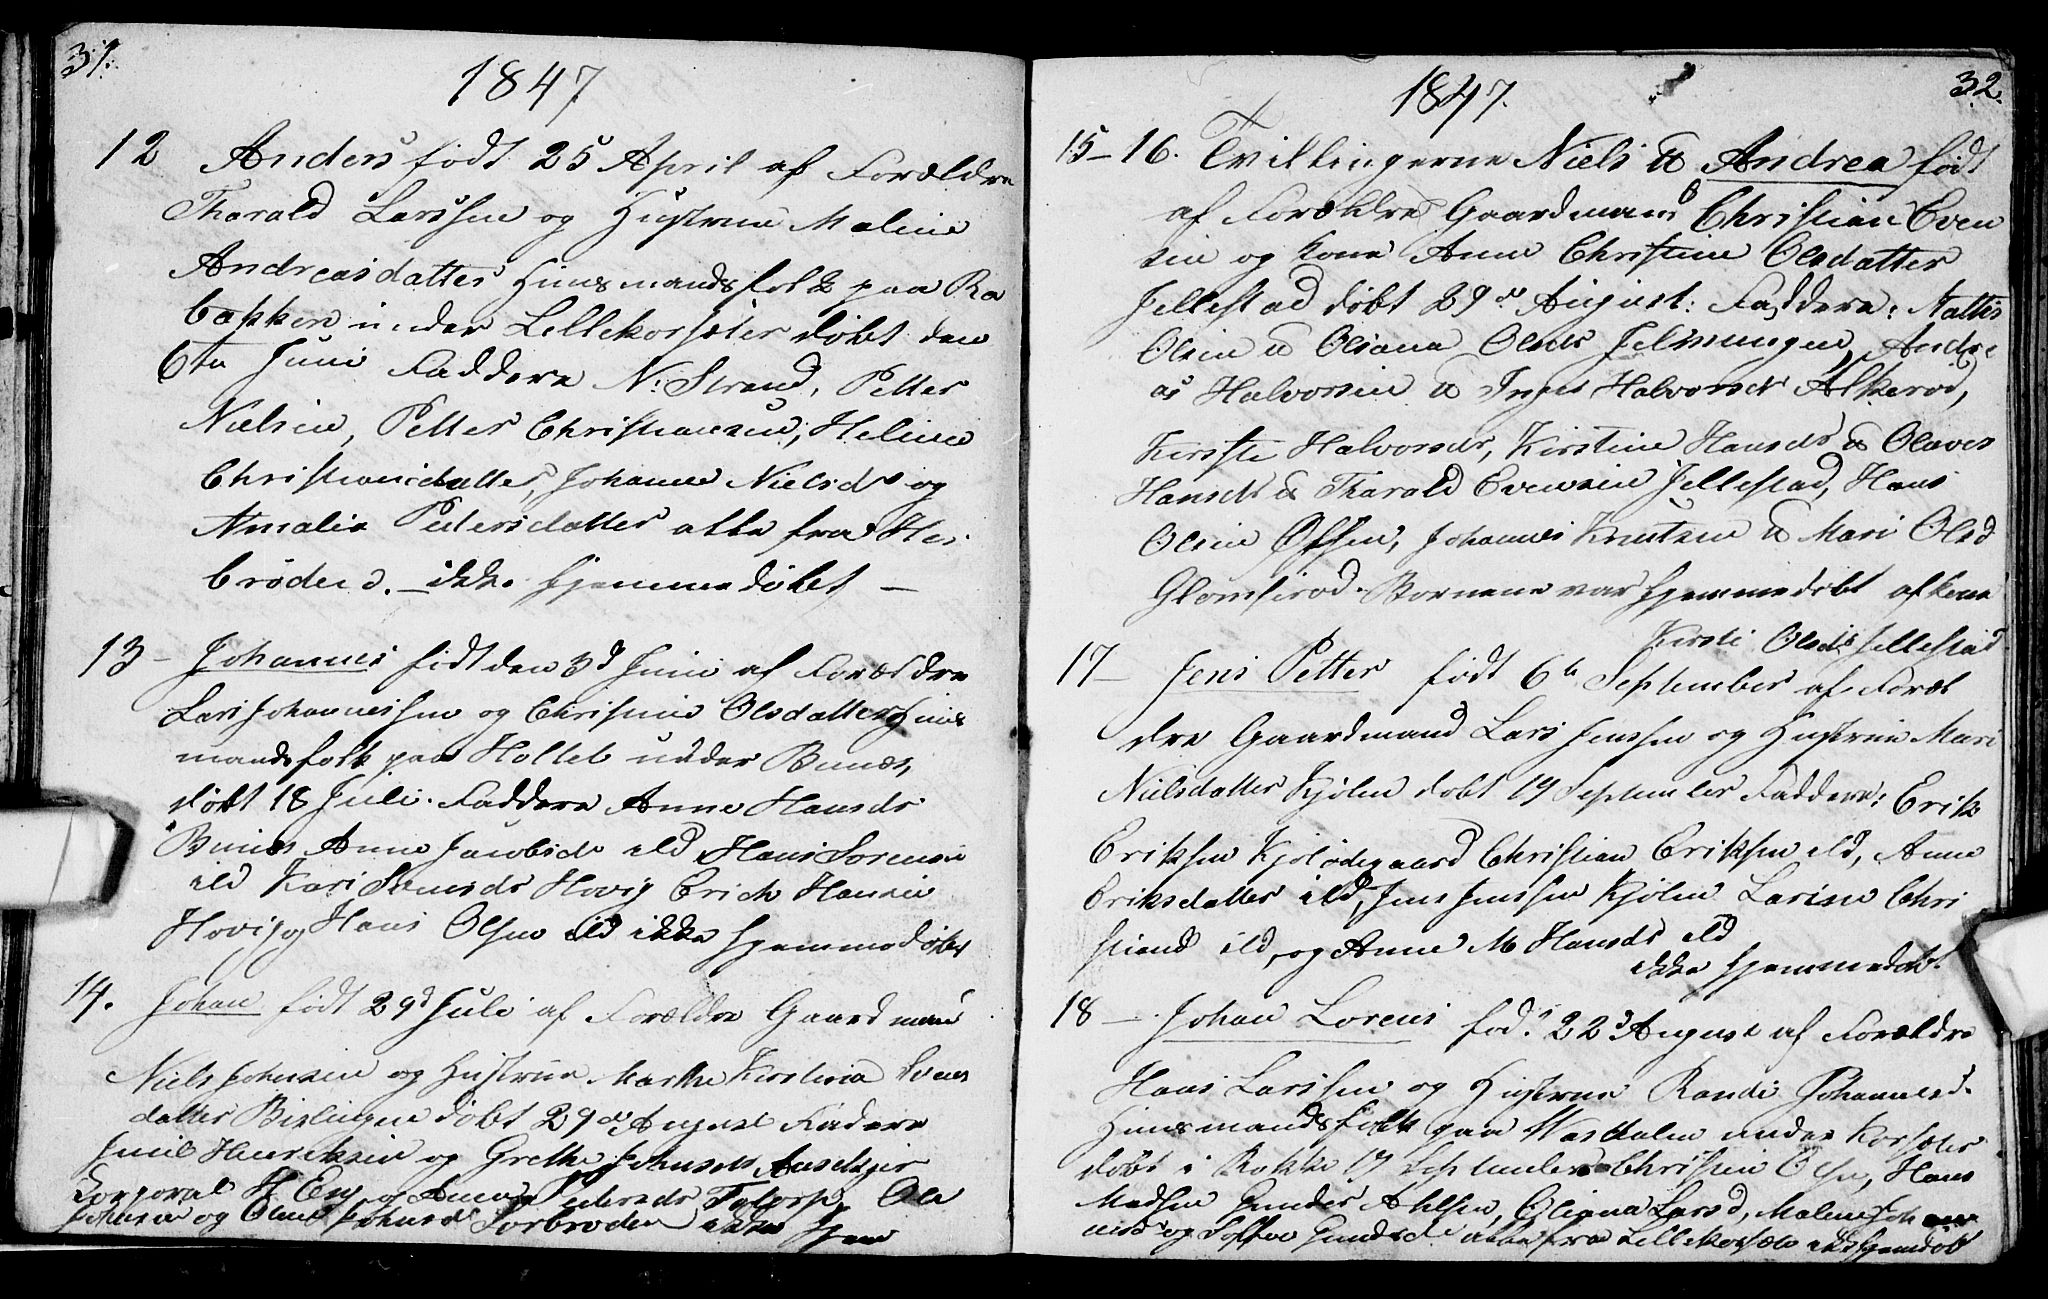 31.
1847
12 Anders født 25 April af Forældre
Tharald Larssen og Hustrue Maline
Andreasdatter Huusmandsfolk paa Ra
bakken under Lillekorsæter døbt den
6te Juni Faddere N: Strand, Petter
Nielsen, Petter Christiansen, Heline
Christiansdatter, Johanne Nielsd og
Amalie Petersdatter alle fra He
brøden. – ikke hjemmedøbt –
13 – Johannes født den 3d Juni af Forældre
Lars Johannessen og Christine Olsdatter Huus
mandsfolk paa Holtet under Bunæs,
døbt 18 Juli. Faddere Anne Hansdr
Bunæs Anne Jacobsd ibd, Hans Sorensen
ibd Kari Hovig Erich Hansen
Hovig og Hans Olsen ibd ikke hjemmedøbt
14. Johan født 29d Juli af Forældre Gaardmand
Niels Johnsen og Hustrue Marthe Kirstine Svens
datter Bislingen døbt 29de August Fadere
Emil Henriksen og Grethe Johnsdtr
Corporal H. og Anne Pedersdr Torp, Ole
Johnsen og Oline Johnsd Sorbroden ikke hjem
32.
1847.
15 – 16. Tvillingerne Niels & Andrea født
af Forældre Gaardmand Christian Even
sen og Kone Anne Christine Olsdatter
Jellestad døbt 29de August: Faddere: Mattis
Olsen & Oliana Olsdr Jelsnungen, Andre
as Halvorsen & Inger Halvorsdr Alkerød,
Kirsti Halvorsdr, Kirstine Hansdr & Olaves
Hansdr & Tharald Evensen Jellestad, Hans
Olsen Øssen, Johannes Knutsen & Mari Olsd
Glomsrod. Bornene var hjemmedøbt af kone
Kirsti Olsdr Jellestad
17 – Jens Petter født 6te September af Foræl
dre Gaardmand Lars Jenssen og Hustrue Mari
Nielsdatter Kjølen dobt 19 September Faddere: Erik
Eriksen Kjolødegaard Christian Eriksen ibd, Anne
Eriksdatter ibd, Jens Jenssen Kjølen Larine Chri
stiansd ibd, og Anne M Hansdr ibd
ikke hjemmedøbt
18 – Johan Lorens fod 22d August af Forældre
Hans Larssen og Hustrue Randi Johannesd.
Huusmandsfolk paa Vasdalen under Korsæter
døbt i Rokke 19 September Christian Olsen, Hans
Madsen Gunder Ahlsen, Oliana Larsd, Maline Johan
nesd og Gundersd alle fra Lillekorsæter ikke hjemdøbt